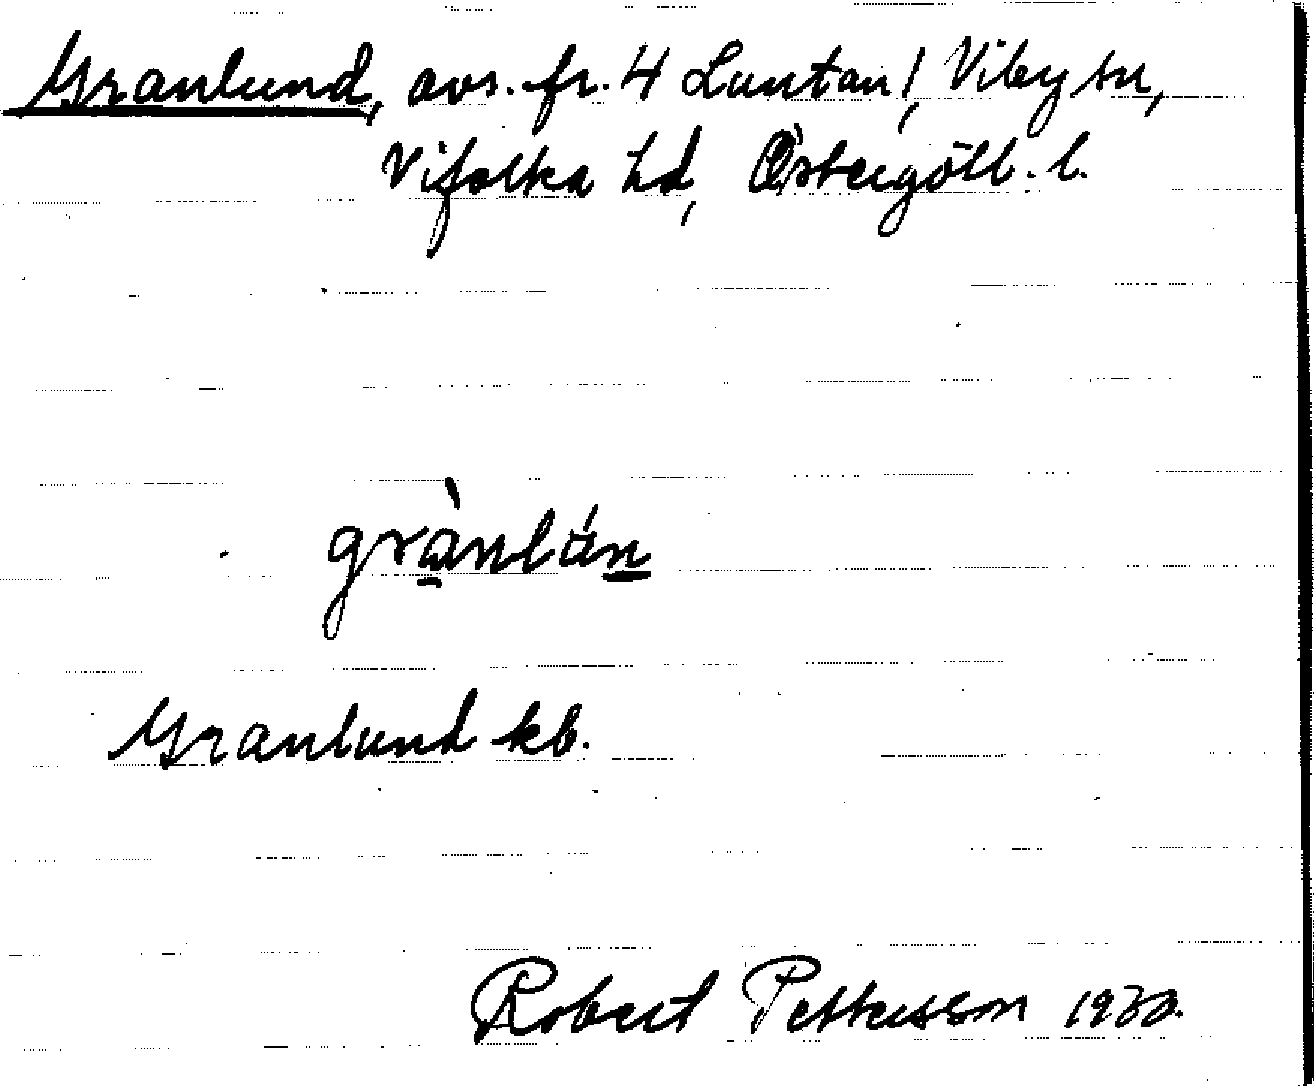 Granlund, avs. fr. 4 Luntan!, Viby sn,
Vifolka hd, Östergötl. l.
grà̱nlún̲
Granlund kb.
Robert Pettersson 1933.